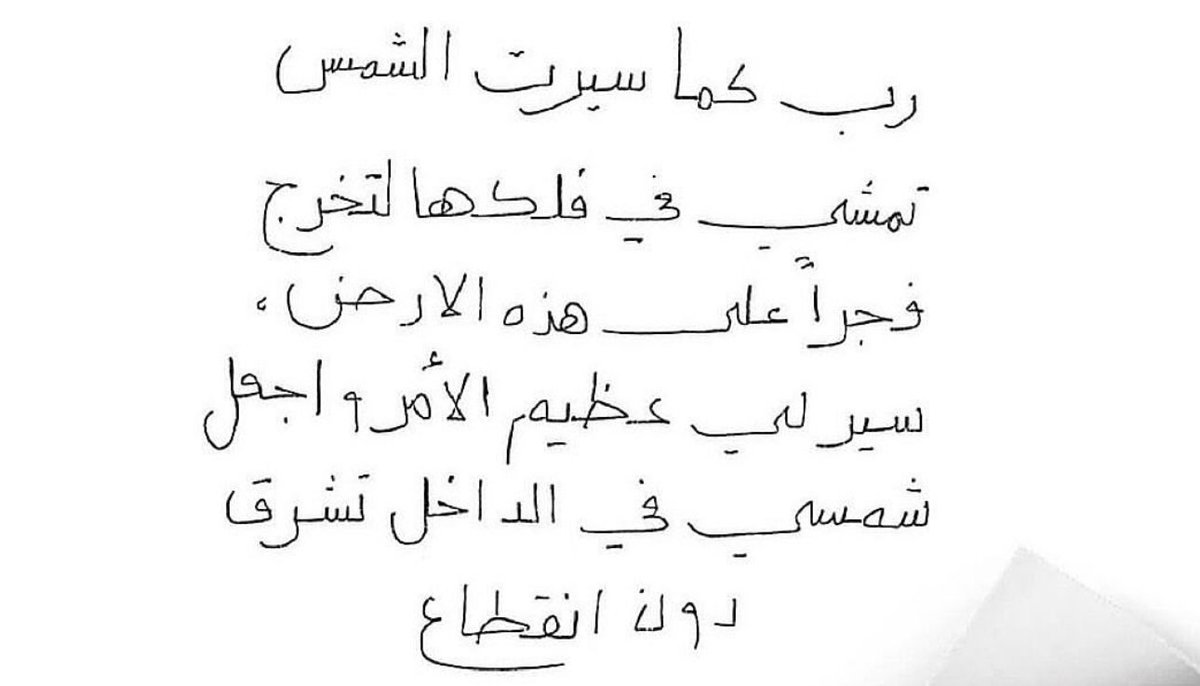 رب كما سيرت الشمس
تمشي في فلكها لتخرج
فجراً على هذه الارض،
سير لي عظيم الأمر واجعل
شمسي في الداخل تشرق
دون انقطاع